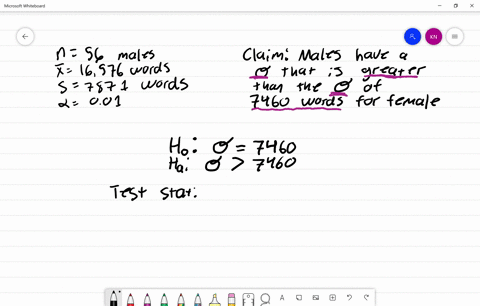 Microsoft Whiteboard
n = 56 males
x̄ = 16,576 words
s = 7871 words
α = 0.01
Claim: Males have a
σ that is greater
than the σ of
7460 words for female
H₀: σ = 7460
Ha: σ > 7460
Test stat:
KN